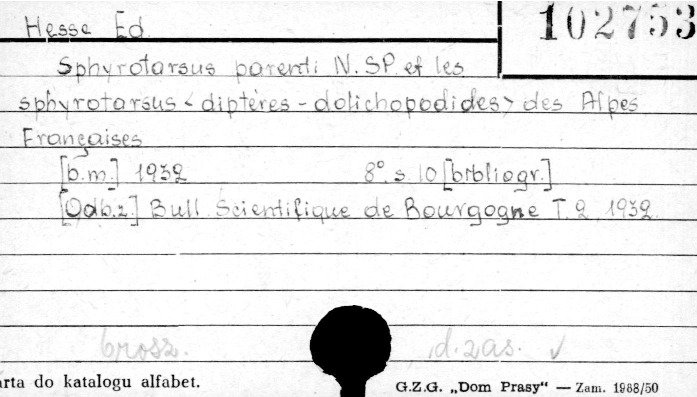 Hesse Ed. 102753
Sphyrotarsus parenti N.SP. et les
sphyrotarsus < diptères - dolichopodides > des Alpes
Françaises
[b.m.] 1932 8°. s. 10 [bibliogr.]
[Odb.z] Bull. Scientifique de Bourgogne T. 2. 1932.
brosz. d. zas. ✓
arta do katalogu alfabet. G.Z.G. „Dom Prasy“ — Zam. 1988/50